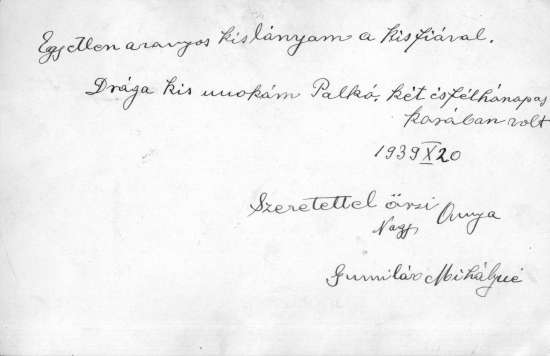 Egyetlen aranyos kislányam a kisfiával.
Drága kis unokám Palkó, két ésfélhónapas
karában volt
1939 X 20
Szeretettel őrzi
Nagy Anya
Mihályné